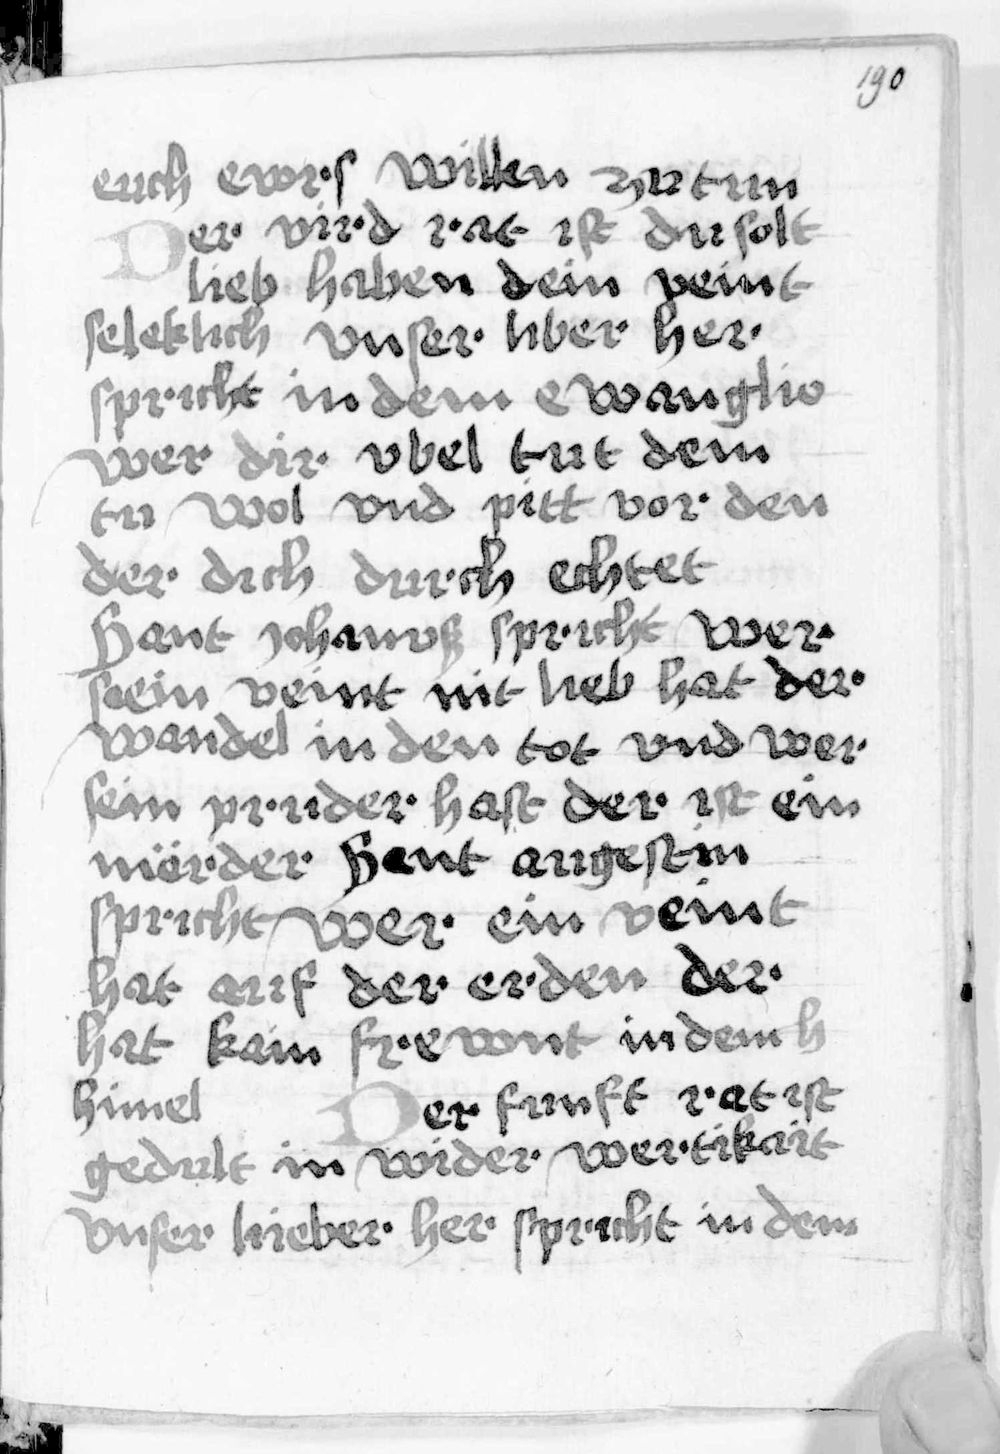 190
euch ewrs willen zutun
Der vird rat ist du solt
lieb haben dein veint
seleklich vnser liber her
spricht in dem ewanglio
wer dir vbel tut dem
tu wol vnd pitt vor den
der dich durch echtet
Sant Johanns spricht wer
sein veint nit lieb hat der
wandel in den tot vnd wer
sein pruder hast der ist ein
mörder Sant augestin
spricht wer ein veint
hat auf der erden der
hat kain frewnt in dem h
himel Der funft rat ist
gedult in wider wertikait
vnser lieber her spricht in dem